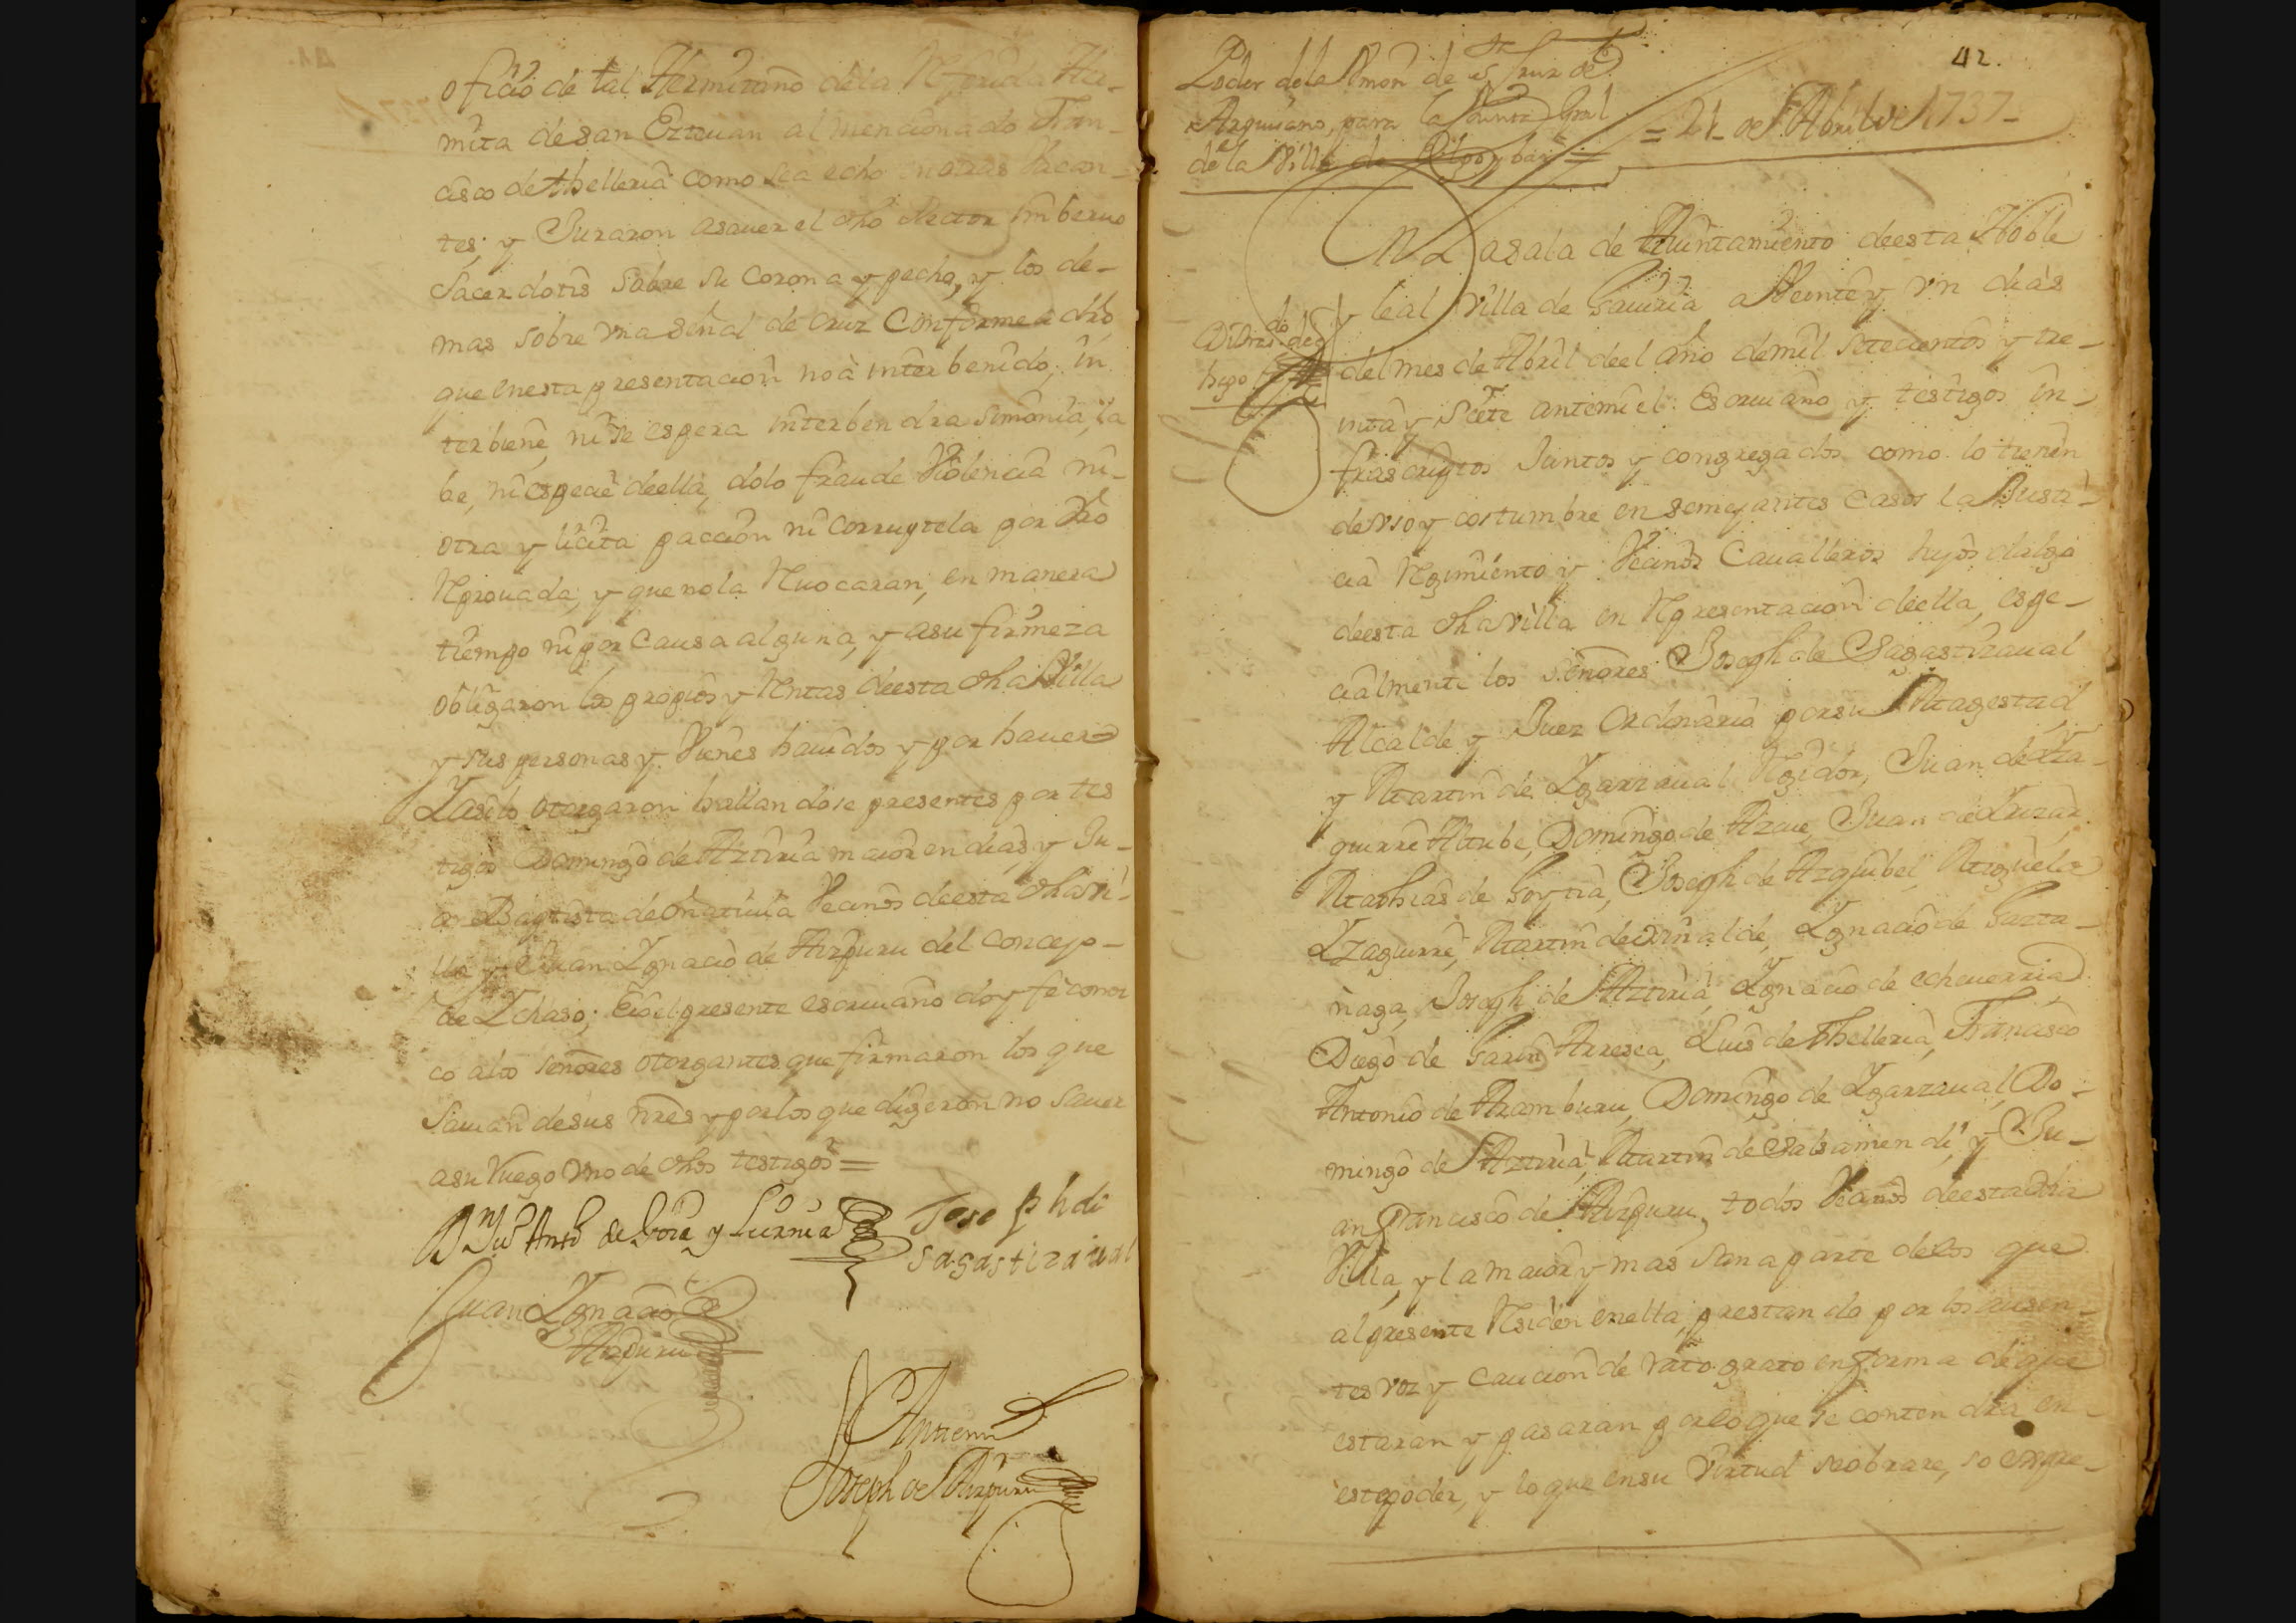 oficio de tal Hermitaño dela Rferida Her-
mita de san Esteuan al mencionado Fran-
cisco de thelleria como sea echo en otras Vacan-
tes; y Juraron asauer el dho Rector in beruo
Sacerdotis sobre su corona y pecho, y los de-
mas sobre vna señal de cruz Conforme a dro
que en esta presentacion no à interbenido, in
terbiene, ni se espera interbendra simonia, la
be, ni especie de ella, dolo fraude Violencia ni
otra y licita paccion ni corruptela por dro
Rprouada, y que no la Ruocaran, en manera
tiempo ni por causa alguna, y asu firmeza
obligaron los propios y Rntas deesta dha Villa
y sus personas y Vienes hauidos y por hauer
Y asilo otorgaron hallandose presentes por tes
tigos Domingo de Aztiria maior en dias, y Ju-
an Baptista de Oñatiuia Vecinos deesta dha Vi-
lla y Juan Ygnacio de Aizpuru del concejo
de Ychaso; Eio el presente escriuano doy fe conoz
co alos señores otorgantes que firmaron los que
sauian de sus nres y por los que digeron no sauer
asu Ruego vno de dhos testigos =
Joseph de
Sagastizaual
Juan Ygnacio
Aizpuru
Antemi
Joseph de Aizpuru
42.
Poder dela Rmon de S Cruz de
Arguisano, para la Junta Gral
de la Villa de
= 21 de Abril de 1737 -
En La sala de Aiuntamiento de esta Noble
y leal Villa de Gauiria a Veinte y vn dias
del mes de Abril de el año de mil setecientos y tre-
inta y siete antemi el Escriuano y testigos in-
frascriptos Juntos y congregados como lo tienen
de vso y costumbre en semejantes casos la Justi-
cia Rgimiento y Vecinos Caualleros hijos dalgo
deesta dha villa en Rpresentacion de ella, espe-
cialmente los señores Joseph de Sagastizaual
Alcalde y Juez Ordinario por su Magestad
y Martin de Ygarzaual Rgidor, Juan de Yza-
guirre Altube, Domingo de Azcue, Juan de
Mathias de Goytia, Joseph de Azquibel, Miguel de
Yzaguirre, Martin de Ynalde, Ygnacio de Gazta-
ñaga, Joseph de Aztiria, Ygnacio de echeuerria
Diego de Garin Arresea, Luis de Thelleria, Francisco
Antonio de Aramburu, Domingo de Ygarzaual, Do-
mingo de Aztiria, Martin de Galsamendi, y Ju-
an francisco de Aizpuru, todos Vecinos deesta dha
Villa, y la maior y mas sana parte delos que
al presente Rsiden enella, prestando por los ausen-
tes voz y caucion de rato grato en forma de que
estaran y pasaran por lo que se contendra en
este poder, y lo que ensu Virtud se obrare, so expre-